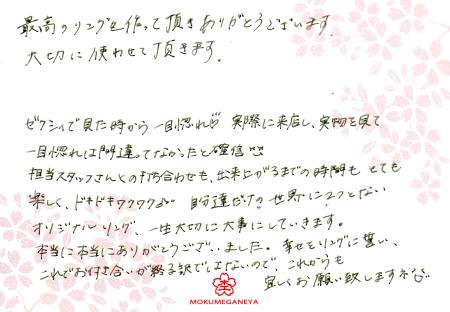 最高のリングを作って頂きありがとうございます。
大切に使わせて頂きます。
ゼクシィで見た時から一目惚れ♡ 実際に来店し、実物を見て
一目惚れは間違ってなかったと確信
担当スタッフさんとの打ち合わせも、出来上がるまでの時間も とても
楽しく、ドキドキワクワク♪ 自分達だけの世界に2つとない
オリジナルリング、一生大切に大事にしていきます。
本当に本当にありがとうございました。幸せをリングに誓い、
これでお付き合いが終る訳ではないので、これからも
宜しくお願い致しますネ
MOKUMEGANEYA